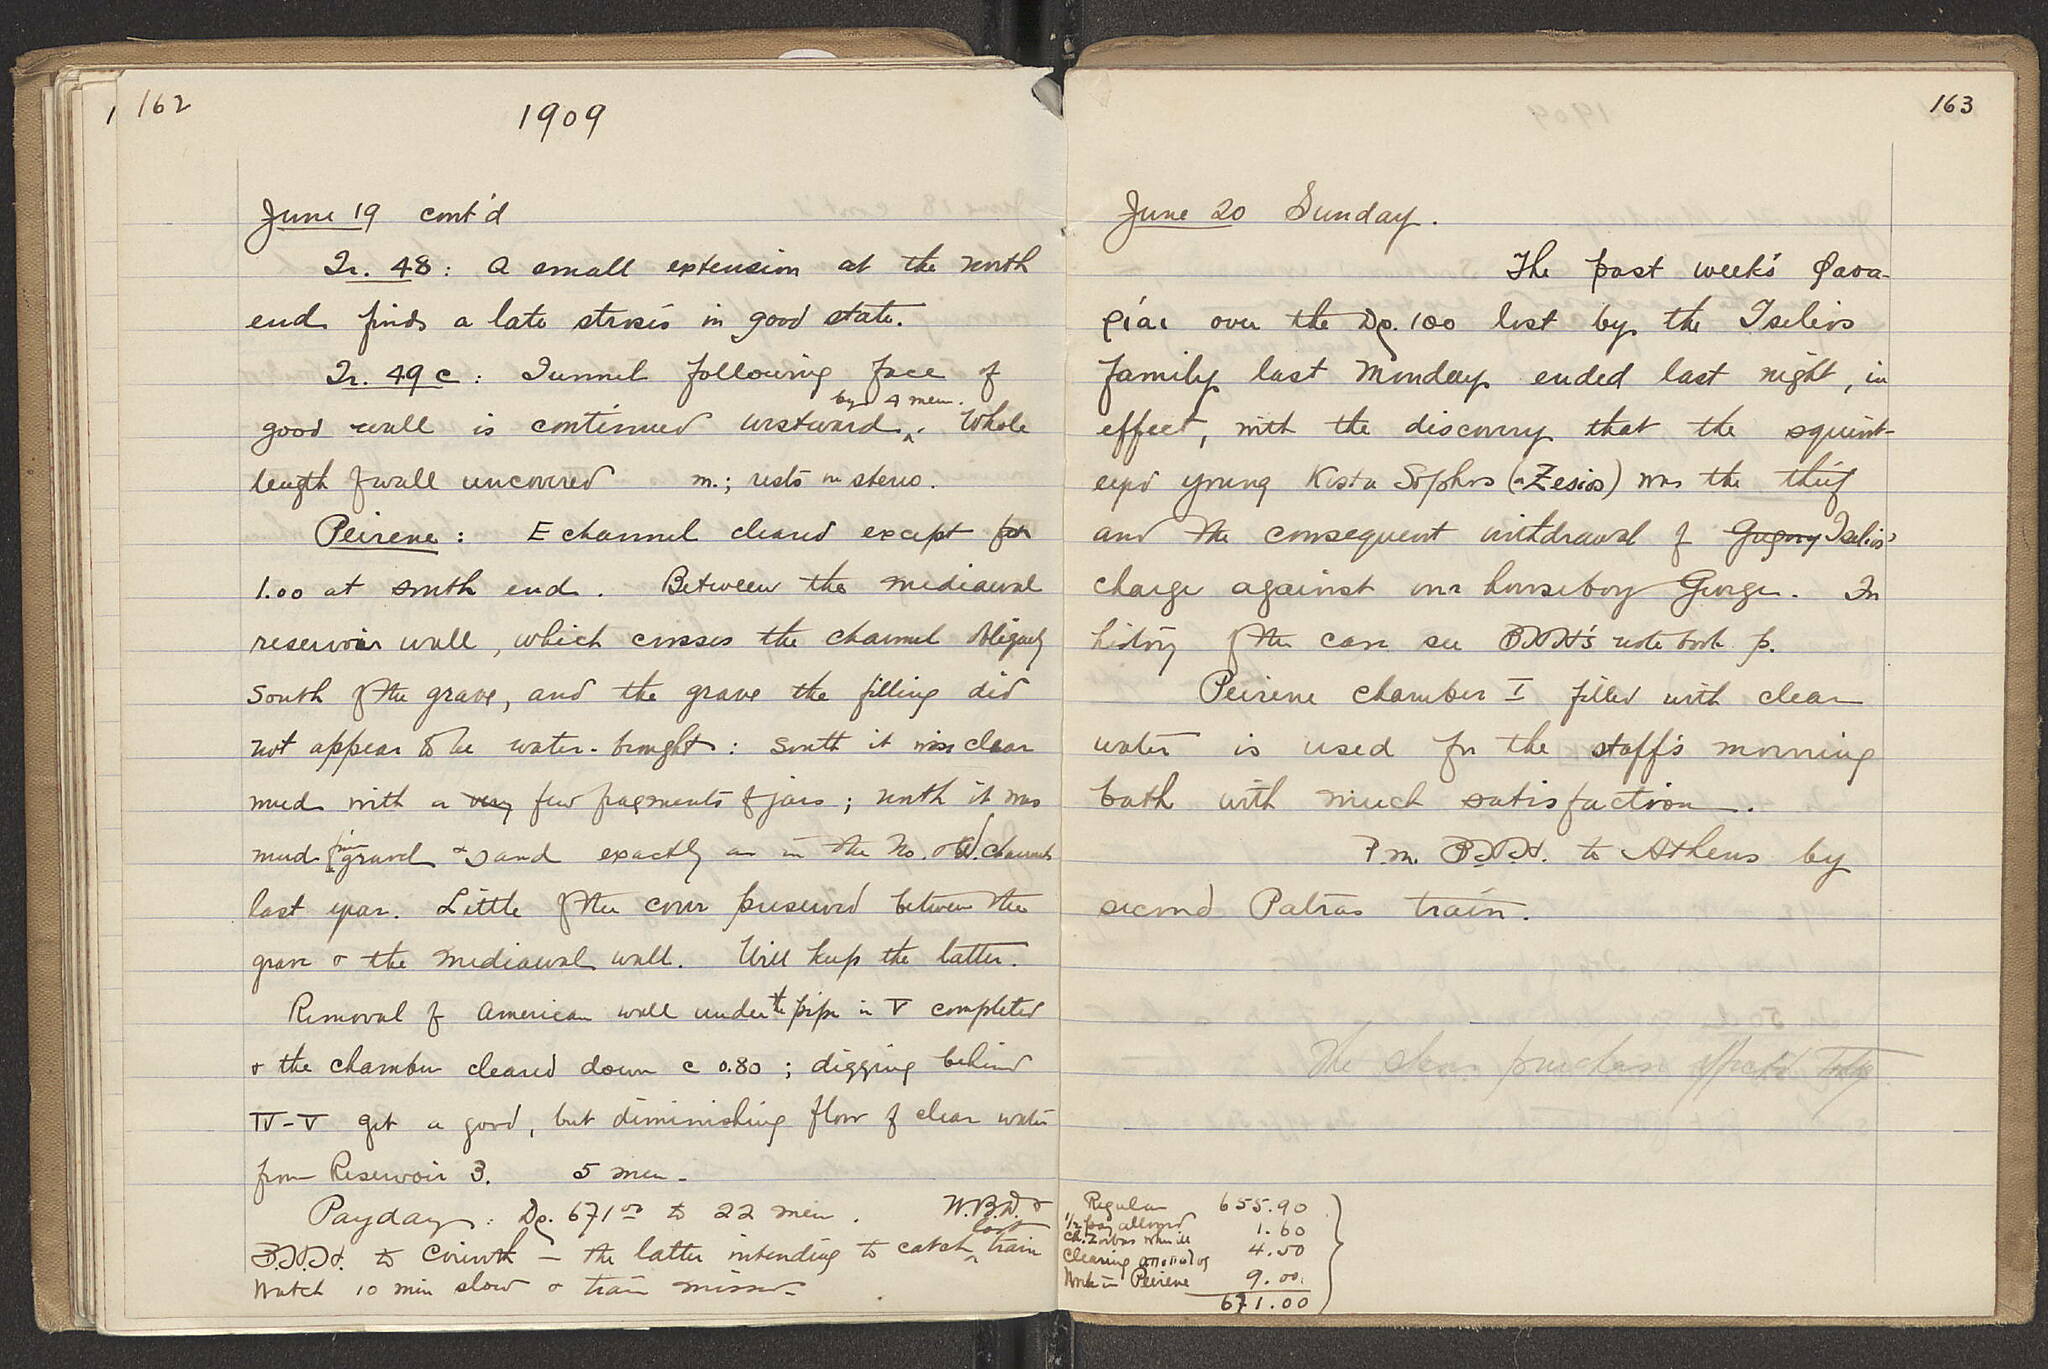 162
1909
June 19 cont'd
Tr. 48: A small extension at the north
end finds a late strosis in good state.
Tr. 49 c: Tunnel following face of
by 4 men.
good wall is continued westward. Whole
length of wall uncovered m.; rests on stereo.
Peirene: E channel cleared except for
1.00 at south end. Between the mediaeval
reservoir wall, which crosses the channel obliquely
South of the grave, and the grave the filling did
not appear to be water-brought: south it was clear
mud with a very few fragments of jars; north it was
mud fine gravel & sand exactly as in the No. & W. channels
last year. Little of the cover preserved between the
grave & the mediaeval wall. Will keep the latter.
Removal of American wall under the pipe in V completed
& the chamber cleared down c 0.80; digging behind
IV-V get a good, but diminishing flow of clear water
from Reservoir 3. 5 men.
Payday: Dρ. 671 00 to 22 men. W.B.D. &
last
to Corinth — the latter intending to catch train
Watch 10 min slow & train missed
163
June 20 Sunday.
The past week's φασα-
ρίαι over the Dρ. 100 lost by the Tselios
family last Monday ended last night, in
effect, with the discovery that the squint-
eyed young Kosta Sophos (Zesios) was the thief
and the consequent withdrawal of Gregory Tselios'
charge against our houseboy George. For
history of the case see notebook p.
Peirene chamber I filled with clear
water is used for the staff's morning
bath with much satisfaction.
P.m. to Athens by
second Patras train.
The purchase effected today
Regular 655.90
1/2 pay allowed
Ch. Zorbas when ill 1.60
Clearing 4.50
Work in Peirene 9.00
671.00